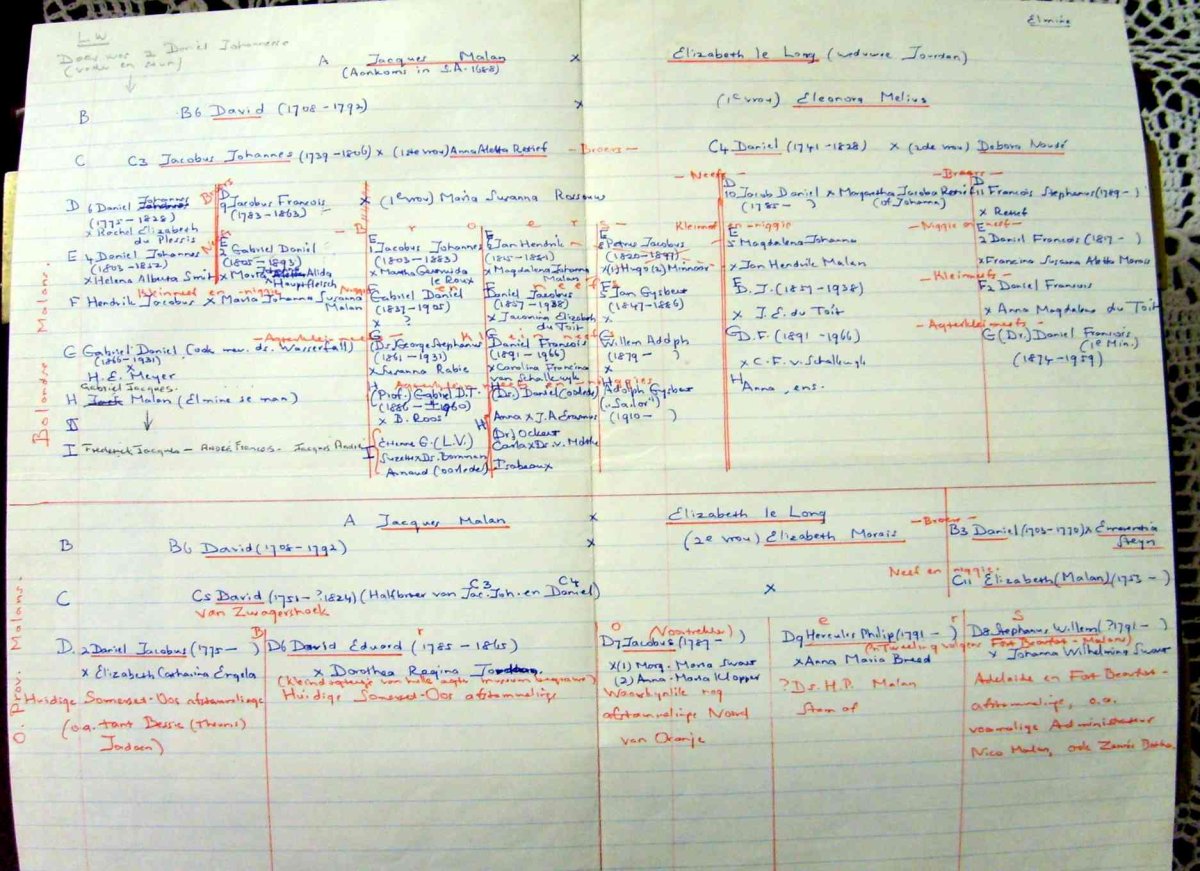 Elmine
L.W
Daar was 2 Daniel Johannesse
(vader en seun)
A Jacques Malan x Elizabeth le Long (weduwee Jourdan)
(Aankoms in S.A. 1688)
B B6 David (1708-1792) x (1e vrou) Eleonora Melius
C C3 Jacobus Johannes (1739-1806) x (1ste vrou) Anna Aletta Retief - Broers - C4 Daniel (1741-1828) x (2de vrou) Debora Nousé
Bolandse Malans.
D 6 Daniel Johannes
(1775-1828)
x Rachel Elizabeth
du Plessis
Broers
D
9 Jacobus Francois x (1e vrou) Maria Susanna Rossouw
(1783-1863)
- Neefs -
D
10 Jacob Daniel x Margaretha Jacoba Retief
(1785- ) (of Johanna)
- Broers -
D
11 Francois Stephanus (1789- )
x Retief
E 4 Daniel Johannes
(1803-1852)
x Helena Alberta Smit
Neefs
E
2 Gabriel Daniel
(1805-1893)
x Maria Alida
Hauptfleisch
B r o e r s
E
1 Jacobus Johannes
(1803-1883)
x Martha Gesruida
le Roux
E
6 Jan Hendrik
(1815-1881)
x Magdalena Johanna
Malan
E
8 Petrus Jacobus
(1820-1897)
x (1) Hugo (2) Minnaar
- Kleinneef en niggie
E
5 Magdalena Johanna
x Jan Hendrik Malan
- Niggie en neef -
E
2 Daniel Francois (1817- )
x Francina Susana Aletta Morees
Kleinneef en niggie
F Hendrik Jacobus x Maria Johanna Susanna
Malan
Niggie en neefs
Gabriel Daniel
(1837-1905)
x ?
Daniel Jacobus
(1857-1938)
x Jacomina Elizabeth
du Toit
5 Jan Gysbert
(1847-1886)
x
D.J. (1857-1938)
x J.E. du Toit
- Kleinneefs -
F2 Daniel Francois
x Anna Magdalena du Toit
- Agterkleinneefs -
G Gabriel Daniel Cook mev. ds. Wasserfall)
(1866-1931)
x
H.E. Meyer
G
(Ds.) George Stephanus
(1861-1931)
x Susanna Rabie
G
Daniel Francois
(1891-1966)
x Carolina Francina
van Schalkwyk
G
Willem Adolph
(1879- )
x
G D.F. (1891-1966)
x C.F. v. Schalkwyk
- Agterkleinneefs -
G (Dr.) Daniel Francois
(1e Min.)
(1874-1959)
Gabriel Jacques.
H Malan (Elmine se man)
H
(Prof.) Gabriel D.T.
(1886-±1960)
x B. Roos
H
(Dr.) Daniel (oorlede)
Anna x J.A. Erasmus
Dr J Ockert
Carla x Ds. v. Mathe
Isabeaux
H
Adolph Gysbert
("Sailor")
(1910- )
H Anna, ens.
I Frederick Jacques - André Francois - Jacques André
I
Etienne G. (L.V.)
Suzette x Ds. Bornman
Arnaud (oorlede)
A Jacques Malan x Elizabeth le Long
B B6 David (1708-1792) x (2e vrou) Elizabeth Morais
- Broers -
B3 Daniel (1703-1770) x Emmerentia
Steyn
Neef en niggie.
C C5 David (1751-?1824) (Halfbroer van Jac. Joh. en Daniel) x C11 Elizabeth (Malan) (1753- )
C3 C4
van Zwagershoek
O.Prov. Malans.
B r o e r s
D. 2 Daniel Jacobus (1775- )
x Elizabeth Catharina Ergela
Huidige Somerset-Oos afstammelinge
(o.a. tant Bessie (Theuns)
Jordaan)
D6 David Eduard (1785-1865)
x Dorothea Regina
Huidige Somerset-Oos afstammelinge
(Voortrekker)
D7 Jacobus (1787- )
x (1) Marg. Maria Swart
(2) Anna-Maria Klopper
Waarskynlik nog
afstammelinge Noord
van Oranje
D9 Hercules Philip (1791- )
x Anna Maria Breed
? Ds. H.P. Malan
Stam af
D8 Stephanus Willem (?1791- )
(n Tweeling volgens Fort Beaufort-Malans)
x Johanna Wilhelmina Swart
Adelaide en Fort Beaufort-
afstammelinge, o.a.
voormalige Administrateur
Nico Malan, ook Zannie Botha.